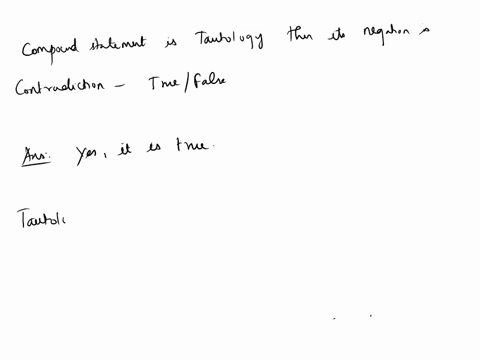 Compound statement is Tautology then its negation is
Contradiction - True/False
Ans: Yes, it is true.
Tautolo